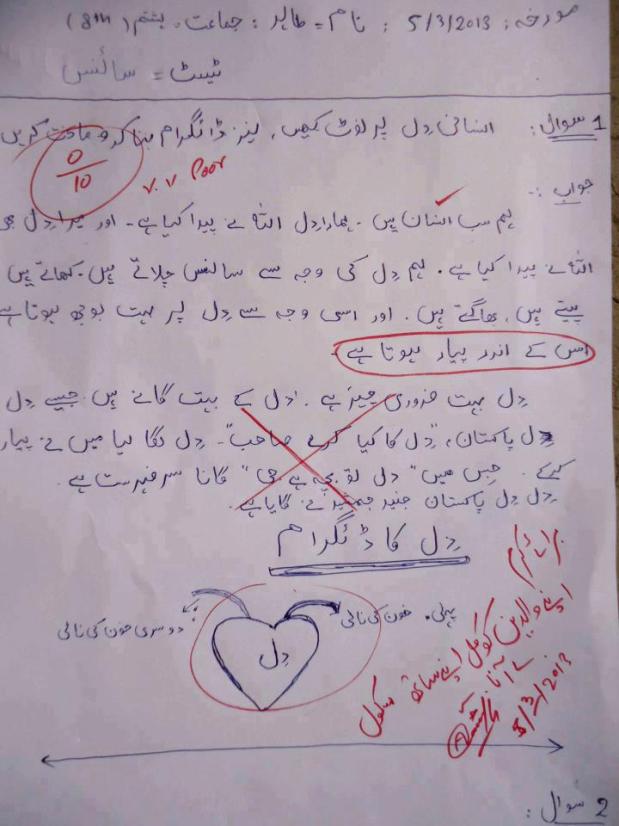 مورخہ: 5/3/2013 : نام = طاہر : جماعت۔ ہشتم (8th)
ٹیسٹ = سائنس
1 سوال: انسانی دِل پر نوٹ لکھیں، نیز ڈائگرام بنا کر وضاحت کریں
0/10
v. v Poor
جواب :-
ہم سب انسان ہیں۔ ہمارا دِل اللہ نے پیدا کیا ہے۔ اور میرا دِل بھی
اللہ نے پیدا کیا ہے۔ ہم دِل کی وجہ سے سانس چلاتے ہیں۔ کھاتے ہیں
پیتے ہیں، بھاگتے ہیں۔ اور اسی وجہ سے دِل پر بہت بوجھ ہوتا ہے
اس کے اندر پیار ہوتا ہے۔
دِل بہت ضروری چیز ہے۔ دل کے بہت گانے ہیں جیسے دِل
دِل پاکستان، "دِل کا کیا کرے صاحب"۔ دِل لگا لیا میں نے پیار
کرکے۔ جس میں "دل تو بچہ ہے جی" گانا سرفہرست ہے۔
دِل دِل پاکستان جنید جمشید نے گایا ہے۔
دِل کا ڈئگرام
پہلی۔ خون کی نالی
دوسری خون کی نالی
دِل
اپنے والدین کو کل اپنے ساتھ سکول
لے آنا
5/3/2013
2 سوال :